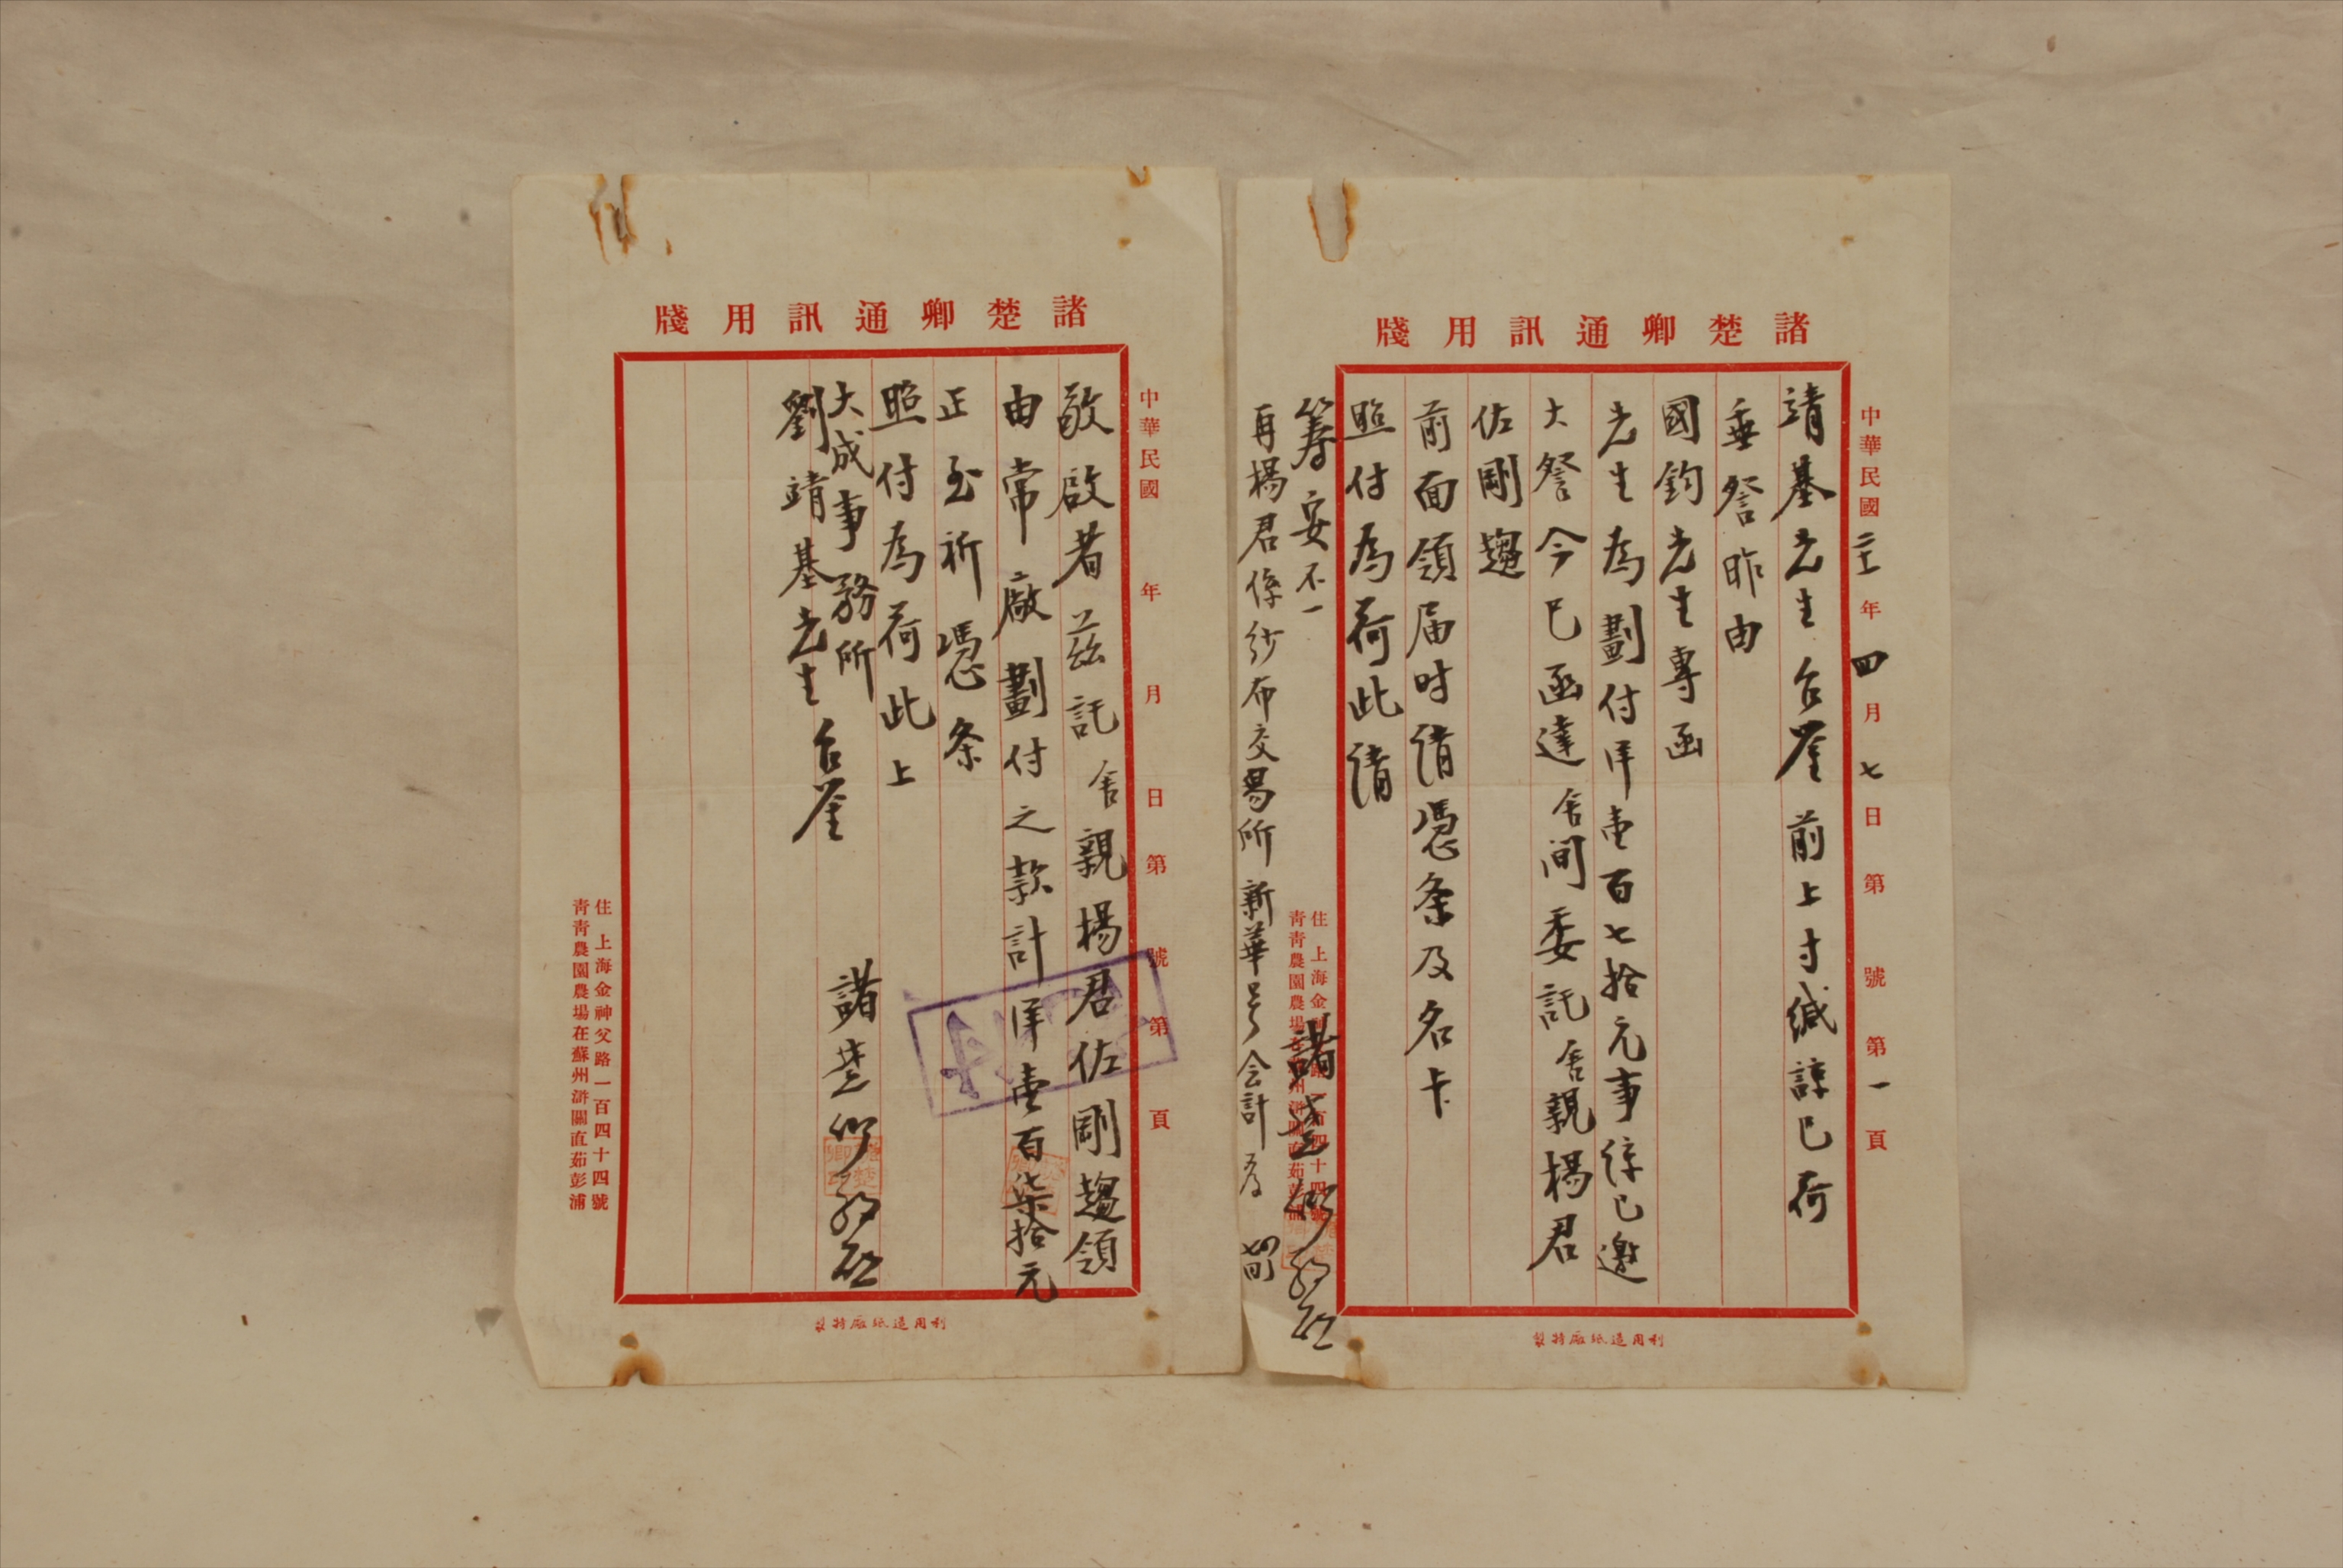 諸楚卿通訊用牋
中華民國二十一年四月七日第 號第一頁
靖基先生台詧前上寸緘諒已荷
垂詧昨由
國鈞先生專函
先生為劃付洋壹百七拾元事諒已邀
大詧今已函達舍間委託舍親楊君
佐剛趨
前面領屆时請憑条及名卡
照付為荷此請
籌安不一
諸楚卿
再楊君係紗布交易所新華号会計
住 上海金神父路一百四十四號
青青農園農場在蘇州滸關直茹彭浦
利用造紙廠特製
諸楚卿通訊用牋
中華民國 年 月 日第 號第 頁
敬啟者茲託舍親楊君佐剛趨領
由常廠劃付之款計洋壹百柒拾元
正至祈憑条
照付為荷此上
大成事務所
劉靖基先生台詧
諸楚卿
住 上海金神父路一百四十四號
青青農園農場在蘇州滸關直茹彭浦
利用造紙廠特製